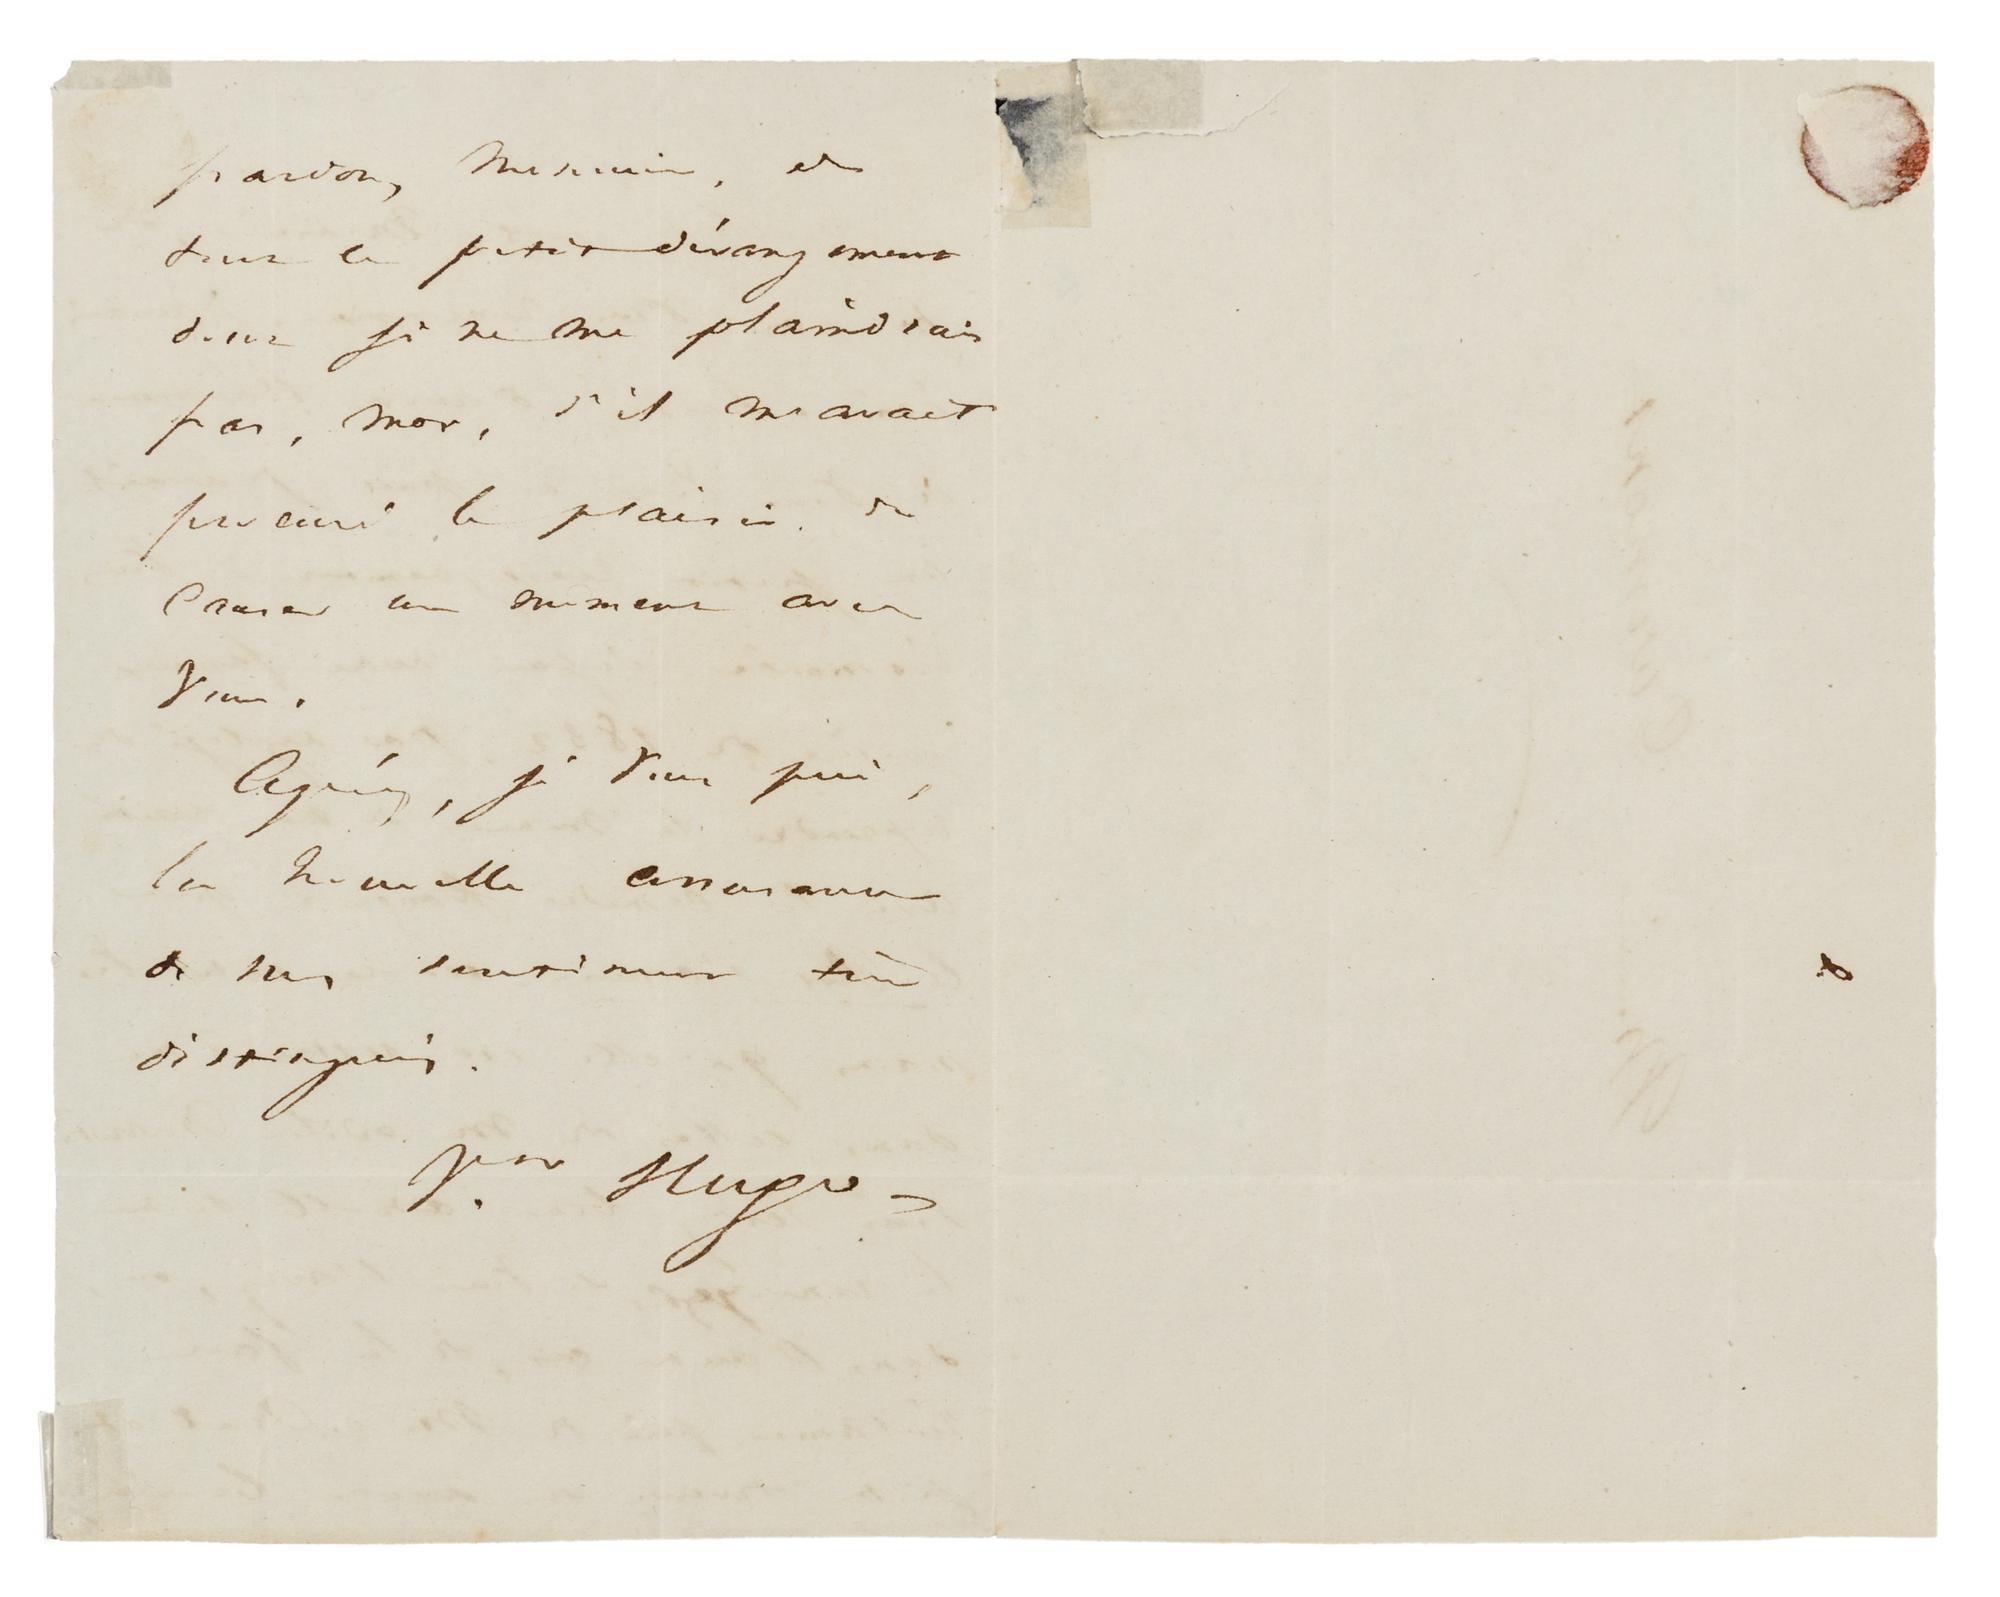 pardon, Monsieur, de
tout ce petit dérangement
dont je ne me plaindrais
pas, moi, s'il m'avait
procuré le plaisir de
causer un moment avec
vous.
Agréez, je vous prie,
la nouvelle assurance
de mes sentiments très
distingués.
Vor Hugo